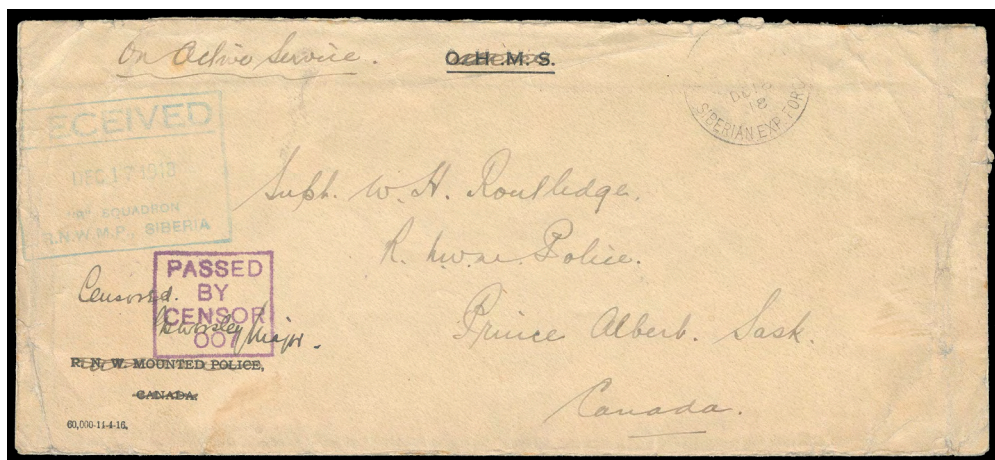 On Active Service.
O. H. M. S.
DE
18
SIBERIAN EXP. FOR
RECEIVED
DEC 17 1918
SQUADRON
R.N.W.M.P., SIBERIA
Supt. W. H. Routledge,
R. N.W.M. Police.
Prince Albert. Sask.
Canada.
PASSED
BY
CENSOR
007
Censored.
Major.
R. N. W. MOUNTED POLICE,
CANADA.
60,000-11-4-16.